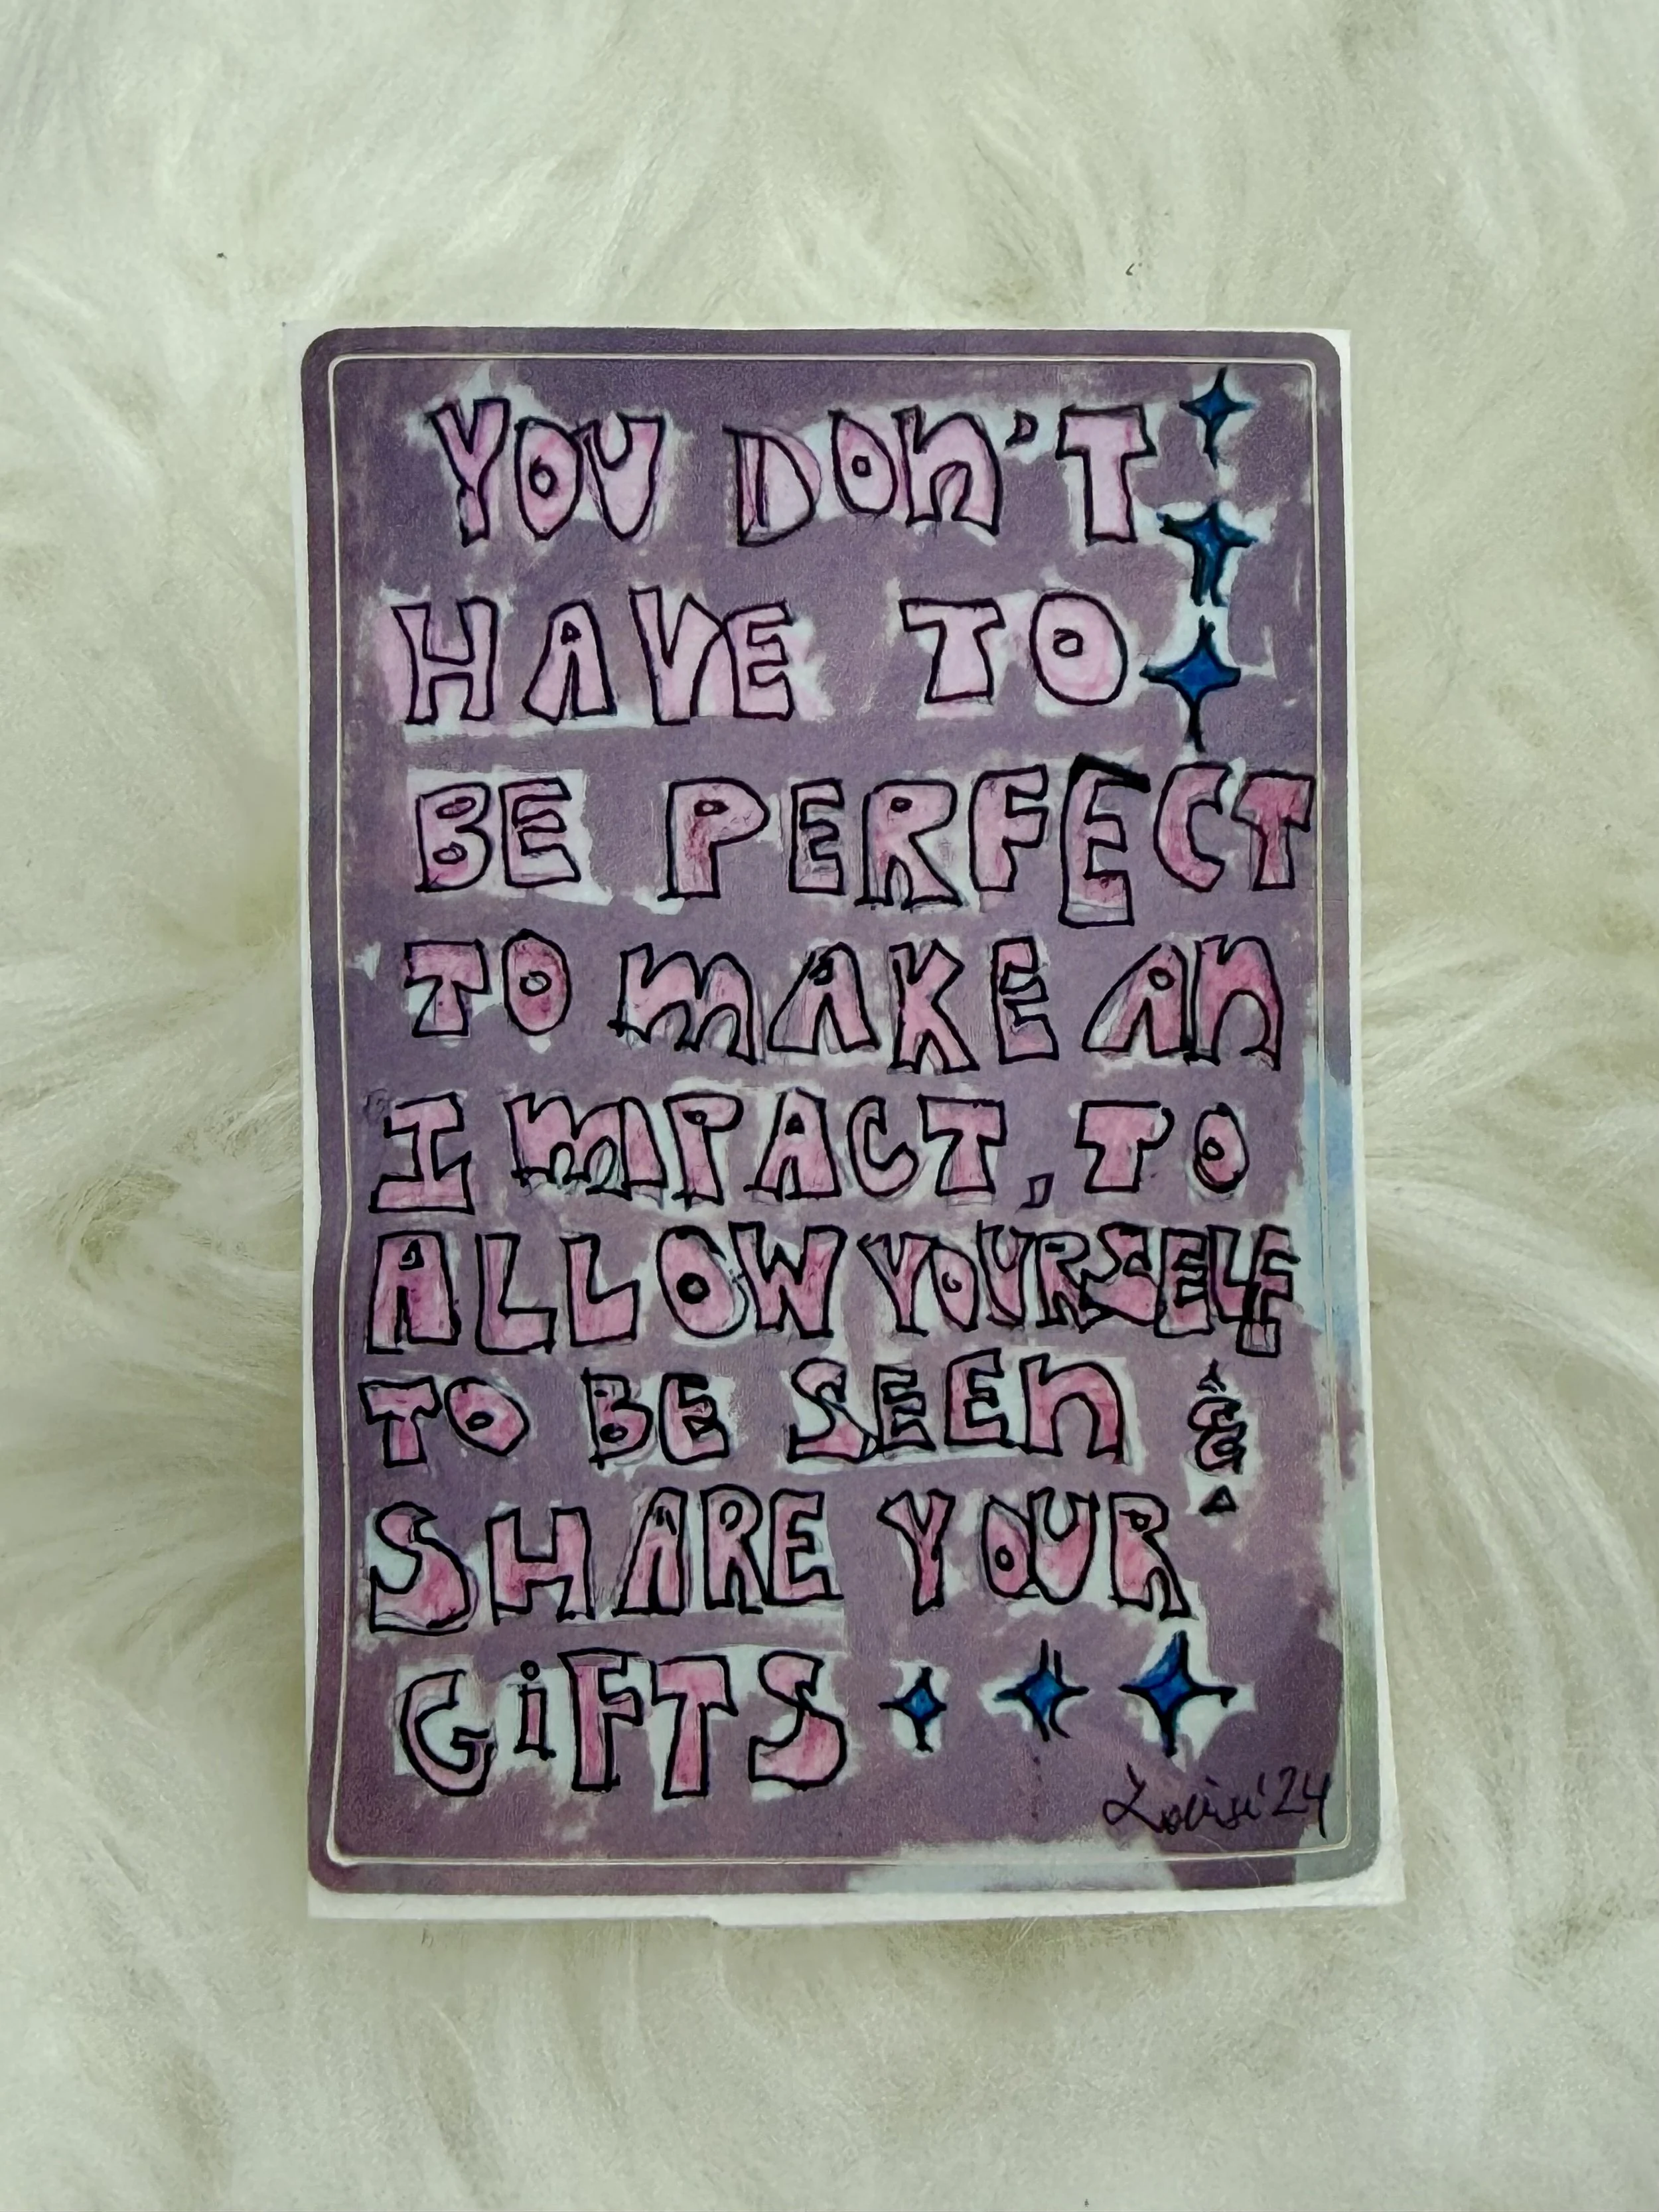 YOU DON'T
HAVE TO
BE PERFECT
TO MAKE AN
IMPACT, TO
ALLOW YOURSELF
TO BE SEEN &
SHARE YOUR
GiFTS
'24